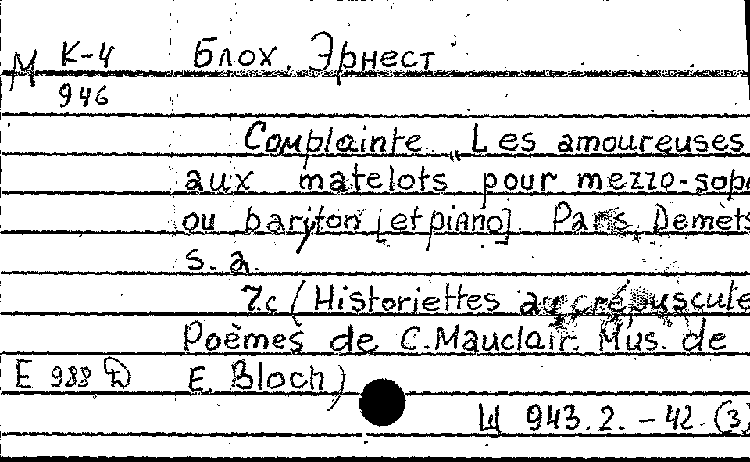 М К-4 Блох, Эрнест
946
Complainte „Les amoureuses
aux matelots pour mezzo-sop
ou bariton [et piano]. Paris, Demets
s. a.
7.c (Historiettes au crépuscule
Poèmes de C. Mauclair. Mus. de
E 988 E. Bloch)
Ш 943.2. - 42. (3)